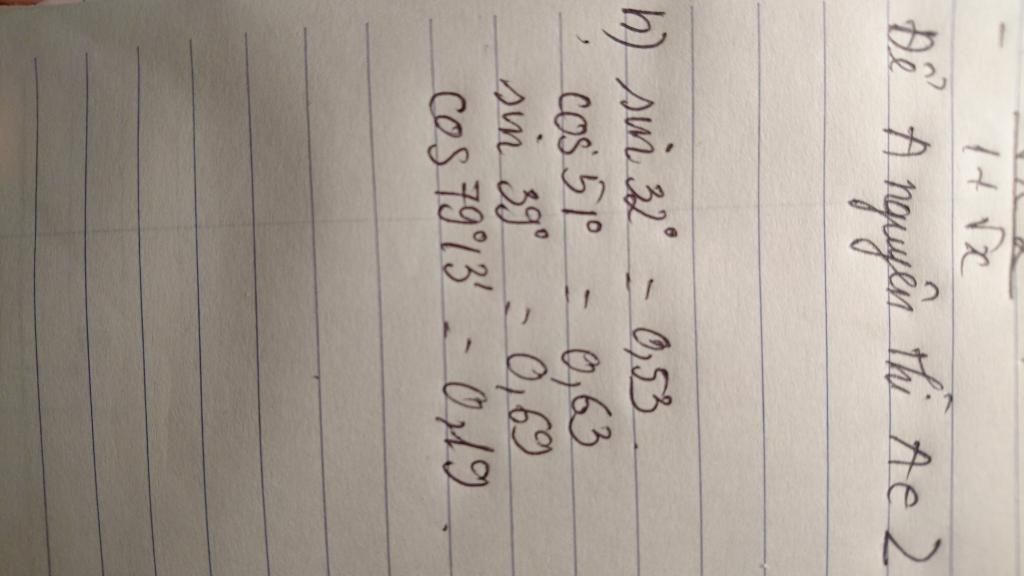 1 + √x
Để A nguyên thì A ∈ Z
h) sin 32° = 0,53
cos 51° = 0,63
sin 39° = 0,69
cos 79°13' = 0,19